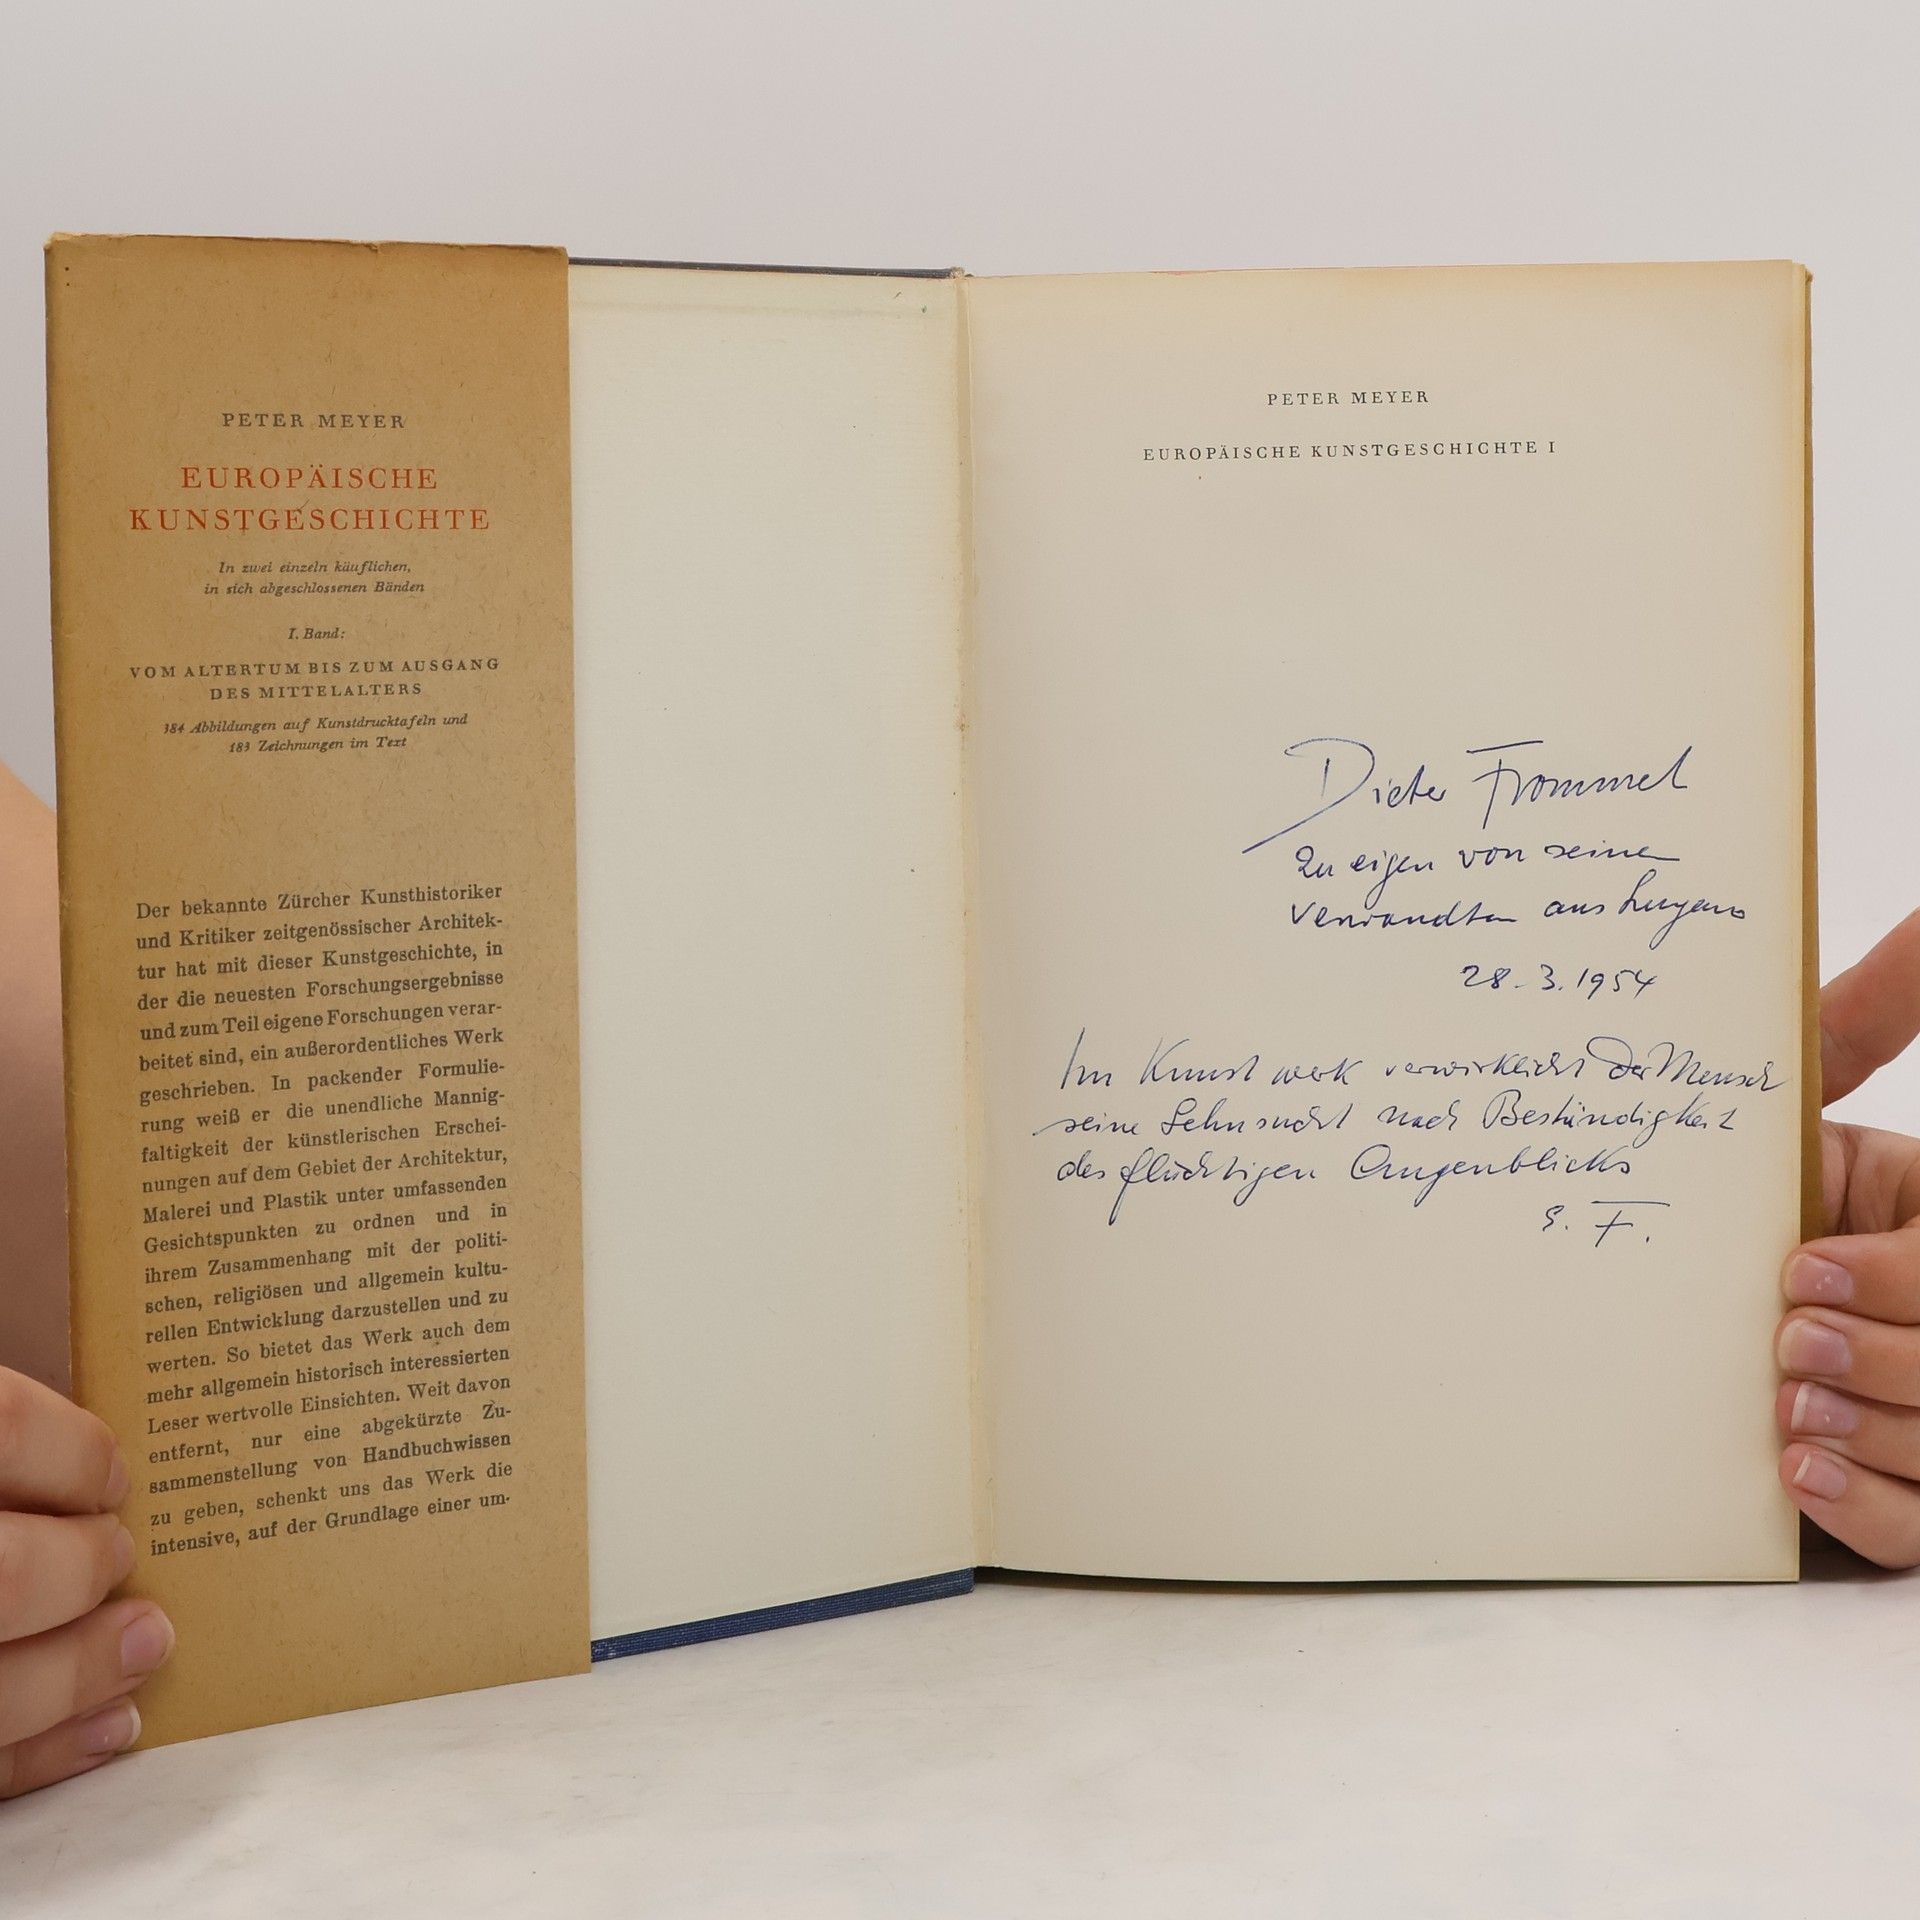 PETER MEYER
EUROPÄISCHE
KUNSTGESCHICHTE
In zwei einzeln käuflichen,
in sich abgeschlossenen Bänden
I. Band:
VOM ALTERTUM BIS ZUM AUSGANG
DES MITTELALTERS
384 Abbildungen auf Kunstdrucktafeln und
183 Zeichnungen im Text
Der bekannte Zürcher Kunsthistoriker
und Kritiker zeitgenössischer Architek-
tur hat mit dieser Kunstgeschichte, in
der die neuesten Forschungsergebnisse
und zum Teil eigene Forschungen verar-
beitet sind, ein außerordentliches Werk
geschrieben. In packender Formulie-
rung weiß er die unendliche Mannig-
faltigkeit der künstlerischen Erschei-
nungen auf dem Gebiet der Architektur,
Malerei und Plastik unter umfassenden
Gesichtspunkten zu ordnen und in
ihrem Zusammenhang mit der politi-
schen, religiösen und allgemein kultu-
rellen Entwicklung darzustellen und zu
werten. So bietet das Werk auch dem
mehr allgemein historisch interessierten
Leser wertvolle Einsichten. Weit davon
entfernt, nur eine abgekürzte Zu-
sammenstellung von Handbuchwissen
zu geben, schenkt uns das Werk die
intensive, auf der Grundlage einer um-
PETER MEYER
EUROPÄISCHE KUNSTGESCHICHTE I
Dieter Frommel
zu eigen von seinen
Verwandten aus Lugano
28. 3. 1954
Im Kunstwerk verwirklicht der Mensch
seine Sehnsucht nach Beständigkeit
des flüchtigen Augenblicks
G. F.